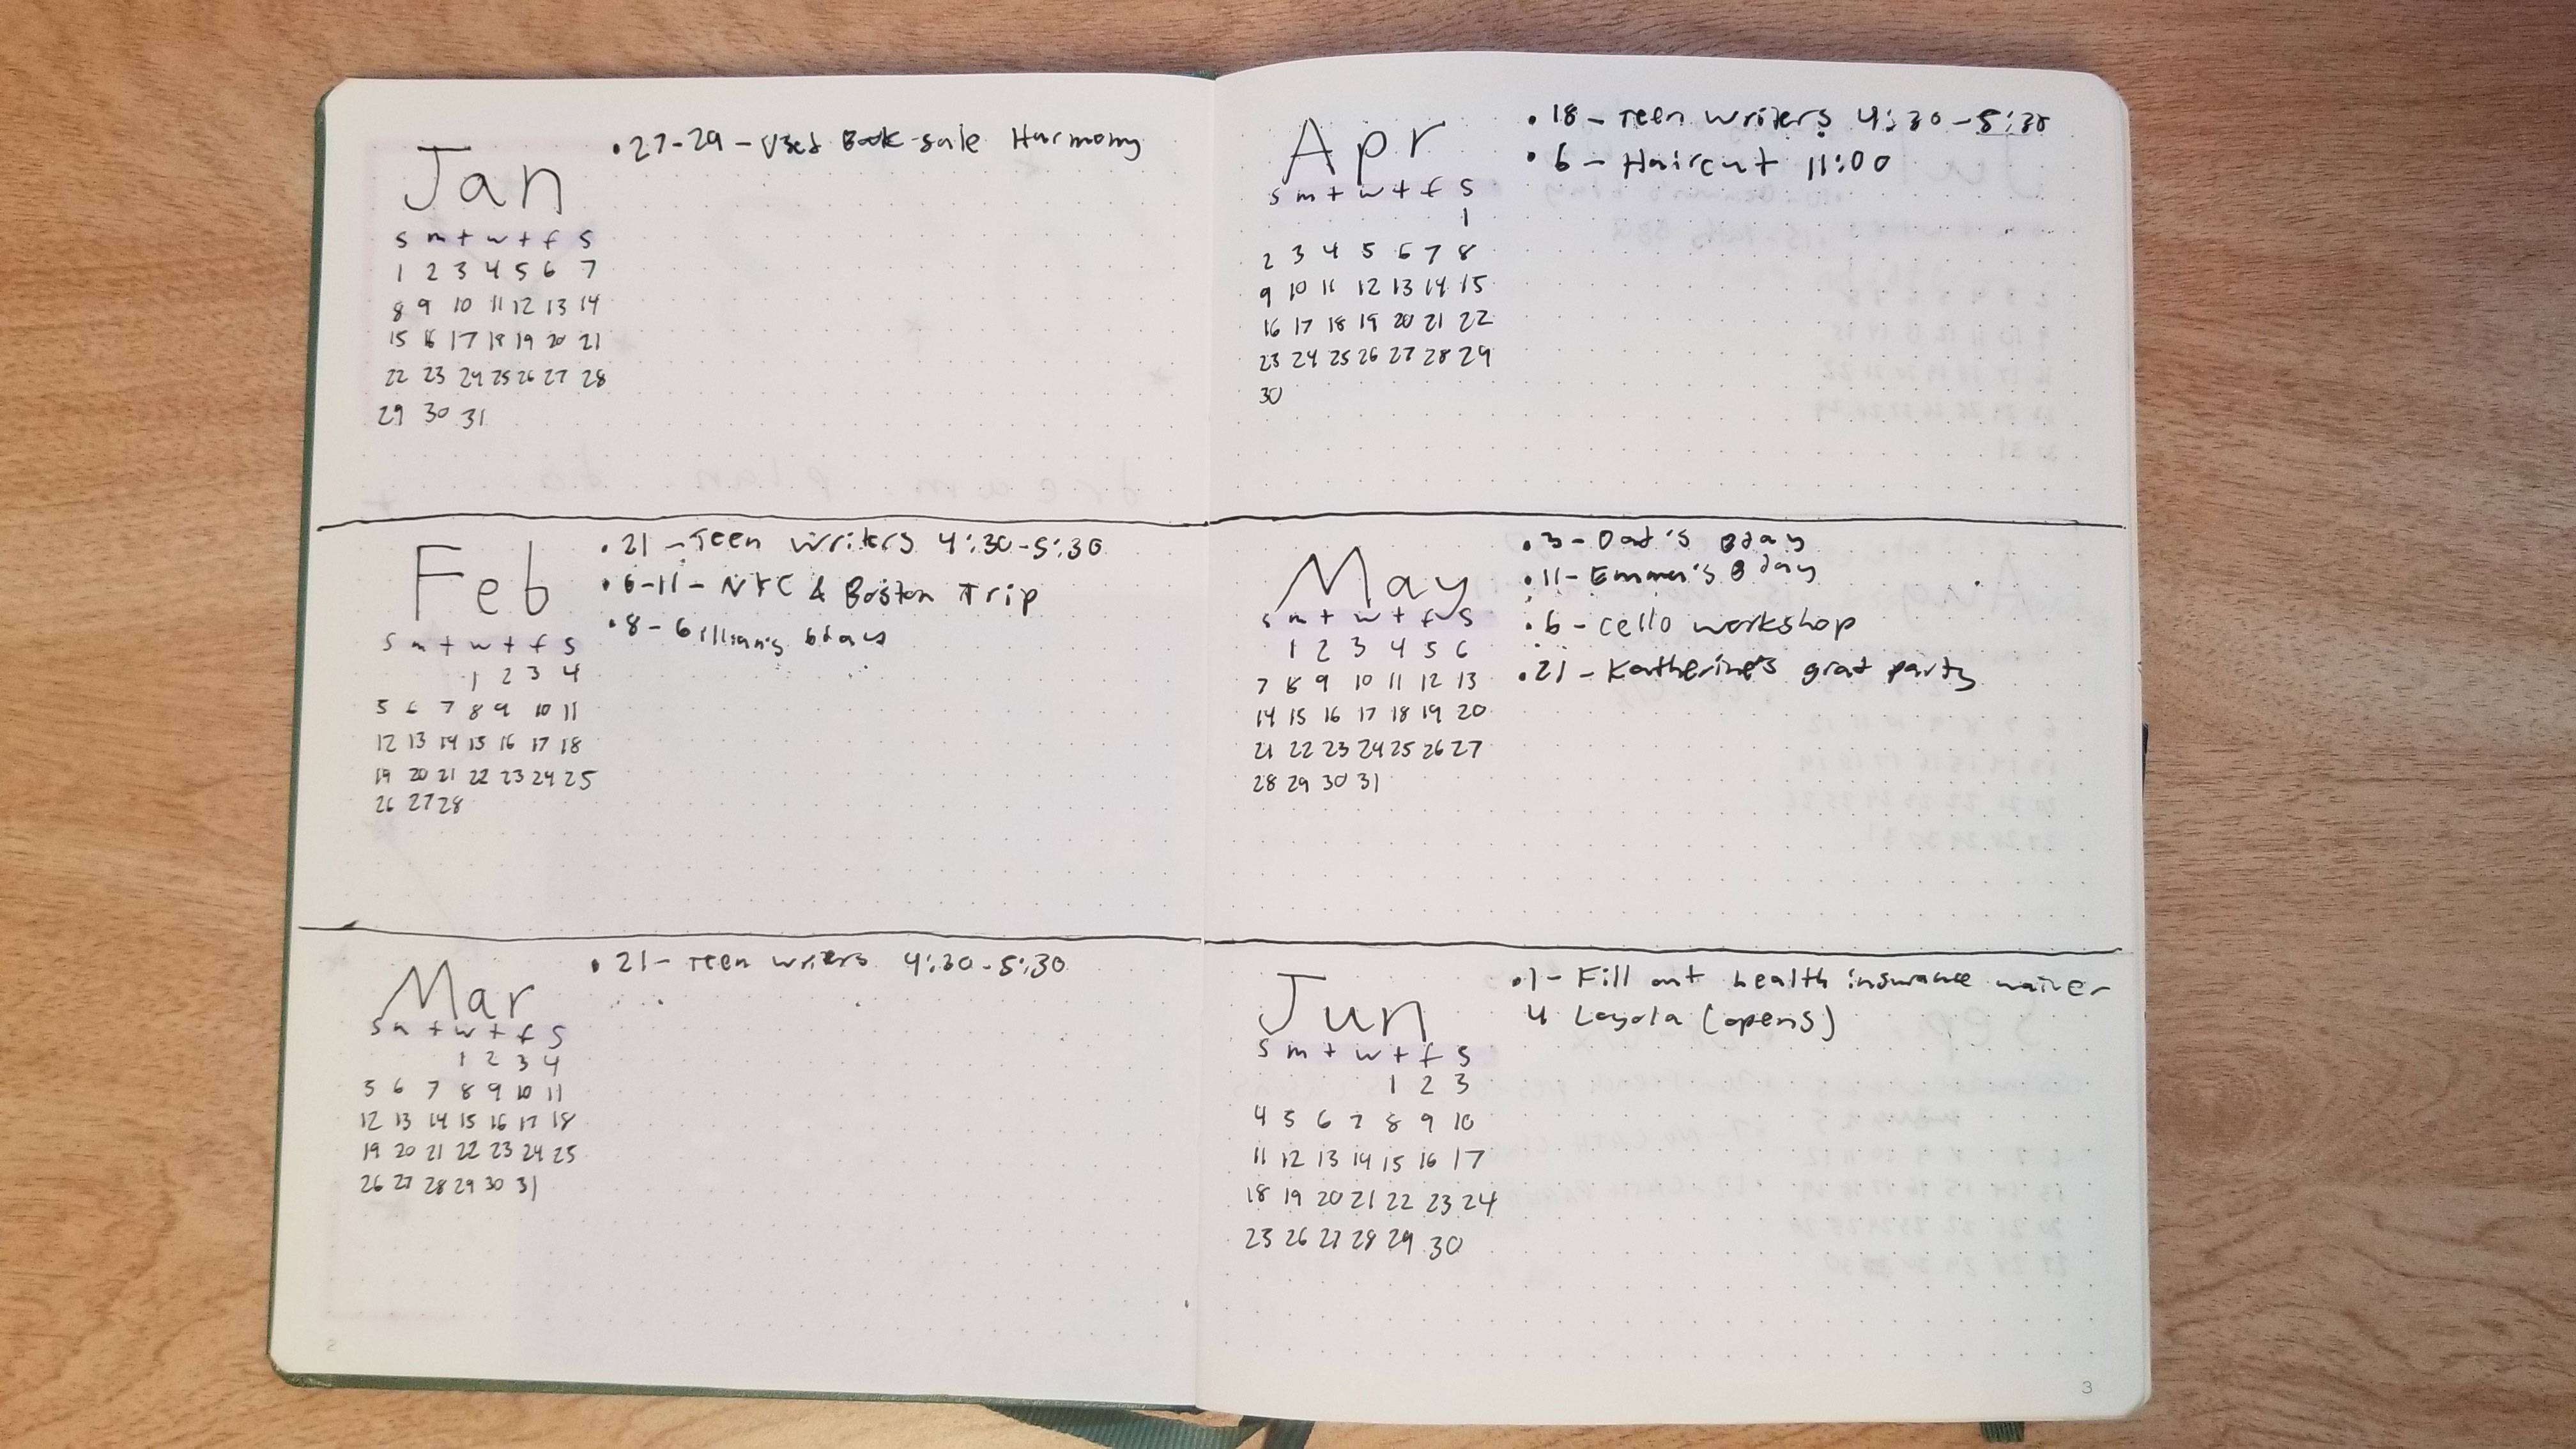 Jan
• 27-29 - Used Book-sale Harmony
s m t w t f s
1 2 3 4 5 6 7
8 9 10 11 12 13 14
15 16 17 18 19 20 21
22 23 24 25 26 27 28
29 30 31
Feb
• 21 - Teen Writers 4:30-5:30
• 6-11 - NYC & Boston Trip
• 8 - Gillian's bday
s m t w t f s
1 2 3 4
5 6 7 8 9 10 11
12 13 14 15 16 17 18
19 20 21 22 23 24 25
26 27 28
Mar
• 21 - Teen writers 4:30-5:30
s m t w t f s
1 2 3 4
5 6 7 8 9 10 11
12 13 14 15 16 17 18
19 20 21 22 23 24 25
26 27 28 29 30 31
2
Apr
• 18 - Teen writers 4:30-5:30
• 6 - Haircut 11:00
s m t w t f s
1
2 3 4 5 6 7 8
9 10 11 12 13 14 15
16 17 18 19 20 21 22
23 24 25 26 27 28 29
30
May
• 3 - Dad's Bday
• 11 - Emma's Bday
• 6 - cello workshop
• 21 - Katherine's grad party
s m t w t f s
1 2 3 4 5 6
7 8 9 10 11 12 13
14 15 16 17 18 19 20
21 22 23 24 25 26 27
28 29 30 31
Jun
• 1 - Fill out health insurance waiver
4 Loyola (opens)
s m t w t f s
1 2 3
4 5 6 7 8 9 10
11 12 13 14 15 16 17
18 19 20 21 22 23 24
25 26 27 28 29 30
3